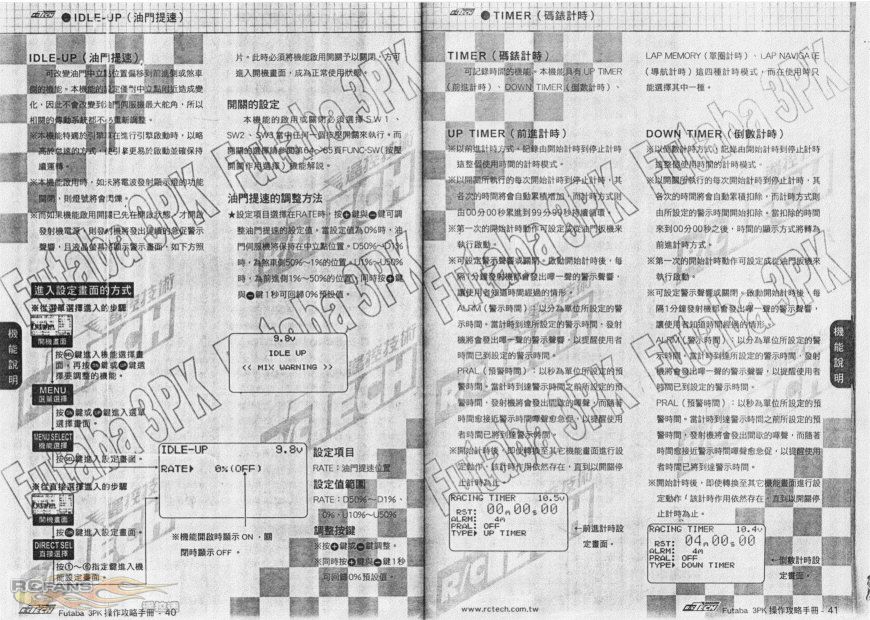 IDLE-UP（油門提速）
IDLE-UP（油門提速）
可改變油門中立點位置偏移到前進側或煞車
側的機能。本機能的設定僅對中立點附近造成變
化，因此不會改變到油門伺服機最大舵角，所以
相關的傳動系統都不必重新調整。
※本機能特適於引擎車在進行引擎啟動時，以略
高於怠速的方式，使引擎更易於啟動並確保持
續運轉。
※本機能啟用時，如未將電波發射顯示燈的功能
關閉，則燈號將會閃爍。
※而如果機能啟用開關已先在開啟狀態，才開啟
發射機電源，則發射機將發出連續的急促警示
聲響，且液晶螢幕將顯示警示畫面，如下方照
片。此時必須將機能啟用開關予以關閉，方可
進入開機畫面，成為正常使用狀態。
進入設定畫面的方式
※從選單選擇進入的步驟
開機畫面
按鍵進入機能選擇畫
面，再按鍵或鍵選
擇要調整的機能。
MENU
選單選擇
按鍵或鍵進入選單
選擇畫面。
MENU SELECT
機能選擇
按鍵進入設定畫面。
※從直接選擇進入的步驟
開機畫面
按鍵進入設定畫面。
DIRECT SEL
直接選擇
按①～⑥指定鍵進入機
能設定畫面。
開關的設定
本機能的啟用或關閉必須選擇S.W 1、
SW2、SW3當中任何一個按壓開關來執行。而
開關的選擇請參閱第64～65頁FUNC-SW（按壓
開關作用選擇）機能解說。
油門提速的調整方法
★設定項目選擇在RATE時，按＋鍵與－鍵可調
整油門提速的設定值。當設定值為0%時，油
門伺服機將保持在中立點位置。D50%～D1%
時，為煞車側50%～1%的位置，U1%～U50%
時，為前進側1%～50%的位置，同時按＋鍵
與－鍵1秒可回歸0%預設值。
9.8v
IDLE UP
<< MIX WARNING >>
IDLE-UP 9.8v
RATE▶ 0%(OFF)
※機能開啟時顯示 ON，關
閉時顯示 OFF。
設定項目
RATE：油門提速位置
設定值範圍
RATE：D50%～D1%、
0%、U10%～U50%
調整按鍵
※按＋鍵或－鍵調整。
※同時按＋鍵與－鍵1秒
可回歸0%預設值。
機能說明
Futaba 3PK 操作攻略手冊 - 40
TIMER（碼錶計時）
TIMER（碼錶計時）
可記錄時間的機能。本機能具有 UP TIMER
（前進計時）、DOWN TIMER（倒數計時）、
LAP MEMORY（單圈計時）、LAP NAVIGATE
（導航計時）這四種計時模式，而在使用時只
能選擇其中一種。
UP TIMER（前進計時）
※以前進計時方式，記錄由開始計時到停止計時
這整個使用時間的計時模式。
※以開關所執行的每次開始計時到停止計時，其
各次的時間將會自動累積增加，而計時方式則
由00分00秒累進到99分99秒持續循環。
※第一次的開始計時動作可設定成從油門扳機來
執行啟動。
※可設定警示聲響或關閉，啟動開始計時後，每
隔1分鐘發射機都會發出嗶一聲的警示聲響，
讓使用者知道時間經過的情形。
ALRM（警示時間）：以分為單位所設定的警
示時間。當計時到達所設定的警示時間，發射
機將會發出嗶一聲的警示聲響，以提醒使用者
時間已到設定的時間。
PRAL（預警時間）：以秒為單位所設定的預
警時間。當計時到達警示時間之前所設定的預
警時間，發射機將會發出間歇的嗶聲，而隨著
時間愈接近警示時間嗶聲愈急促，以提醒使用
者時間已將到達警示時間。
※開始計時後，即使轉換至其它機能畫面進行設
定動作，該計時作用依然存在，直到以開關停
止計時為止。
RACING TIMER 10.5v
RST: 00m00s00
ALRM: 4m
PRAL: OFF
TYPE▶ UP TIMER
←前進計時設
定畫面。
DOWN TIMER（倒數計時）
※以倒數計時方式，記錄由開始計時到停止計時
這整個使用時間的計時模式。
※以開關所執行的每次開始計時到停止計時，其
各次的時間將會自動累積扣除，而計時方式則
由所設定的警示時間開始扣除。當扣除的時間
來到00分00秒之後，時間的顯示方式將轉為
前進計時方式。
※第一次的開始計時動作可設定成從油門扳機來
執行啟動。
※可設定警示聲響或關閉，啟動開始計時後，每
隔1分鐘發射機都會發出嗶一聲的警示聲響，
讓使用者知道時間經過的情形。
ALRM（警示時間）：以分為單位所設定的警
示時間。當計時到達所設定的警示時間，發射
機將會發出嗶一聲的警示聲響，以提醒使用者
時間已到設定的時間。
PRAL（預警時間）：以秒為單位所設定的預
警時間。當計時到達警示時間之前所設定的預
警時間，發射機將會發出間歇的嗶聲，而隨著
時間愈接近警示時間嗶聲愈急促，以提醒使用
者時間已將到達警示時間。
※開始計時後，即使轉換至其它機能畫面進行設
定動作，該計時作用依然存在，直到以開關停
止計時為止。
RACING TIMER 10.4v
RST: 04m00s00
ALRM: 4m
PRAL: OFF
TYPE▶ DOWN TIMER
←倒數計時設
定畫面。
機能說明
www.rctech.com.tw
Futaba 3PK 操作攻略手冊 - 41
RCFANS